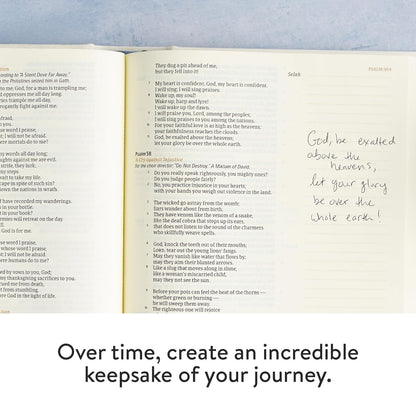 according to "A Silent Dove Far Away."
the Philistines seized him in Gath.
to me, God, for a man is trampling me;
oppresses me all day long.
trample me all day,
arrogantly fight against me.
afraid,
you.
whose word I praise,
I will not be afraid.
mortals do to me?
my words all day long;
thoughts against me are evil.
strife, they lurk,
my steps
wait to take my life.
escape in spite of such sin?
down the nations in wrath.
have recorded my wanderings.
in your bottle.
in your book?
enemies will retreat on the day
God is for me.
whose word I praise,
whose word I praise,
I will not be afraid.
humans do to me?
by vows to you, God;
thanksgiving sacrifices to you.
rescued me from death,
from stumbling,
before God in the light of life.
They dug a pit ahead of me,
but they fell into it! Selah
My heart is confident, God, my heart is confident.
I will sing; I will sing praises.
Wake up, my soul!
Wake up, harp and lyre!
I will wake up the dawn.
I will praise you, Lord, among the peoples;
I will sing praises to you among the nations.
For your faithful love is as high as the heavens;
your faithfulness reaches the clouds.
God, be exalted above the heavens;
let your glory be over the whole earth.
Psalm 58
A Cry against Injustice
For the choir director: "Do Not Destroy." A Miktam of David.
Do you really speak righteously, you mighty ones?
Do you judge people fairly?
No, you practice injustice in your hearts;
with your hands you weigh out violence in the land.
The wicked go astray from the womb;
liars wander about from birth.
They have venom like the venom of a snake,
like the deaf cobra that stops up its ears,
that does not listen to the sound of the charmers
who skillfully weave spells.
God, knock the teeth out of their mouths;
LORD, tear out the young lions' fangs.
May they vanish like water that flows by;
may they aim their blunted arrows.
Like a slug that moves along in slime,
like a woman's miscarried child,
may they not see the sun.
Before your pots can feel the heat of the thorns —
whether green or burning —
he will sweep them away.
The righteous one will rejoice
God, be exalted
above the
heavens,
let your glory
be over the
whole earth!
Over time, create an incredible
keepsake of your journey.